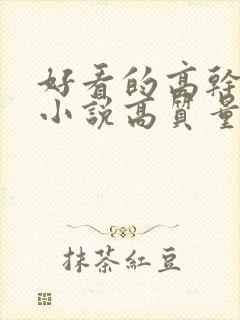 好看的高幹
小說高質量
抹茶紅豆